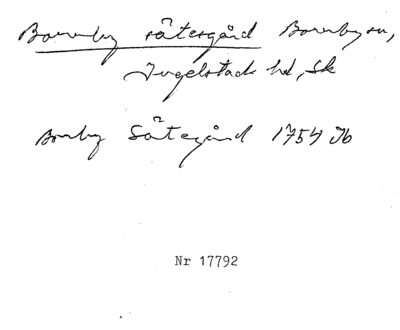 Borrby sätesgård Borrby sn,
Ingelstads hd, Sk
Borrby Sätegård 1754 Jb
Nr 17792